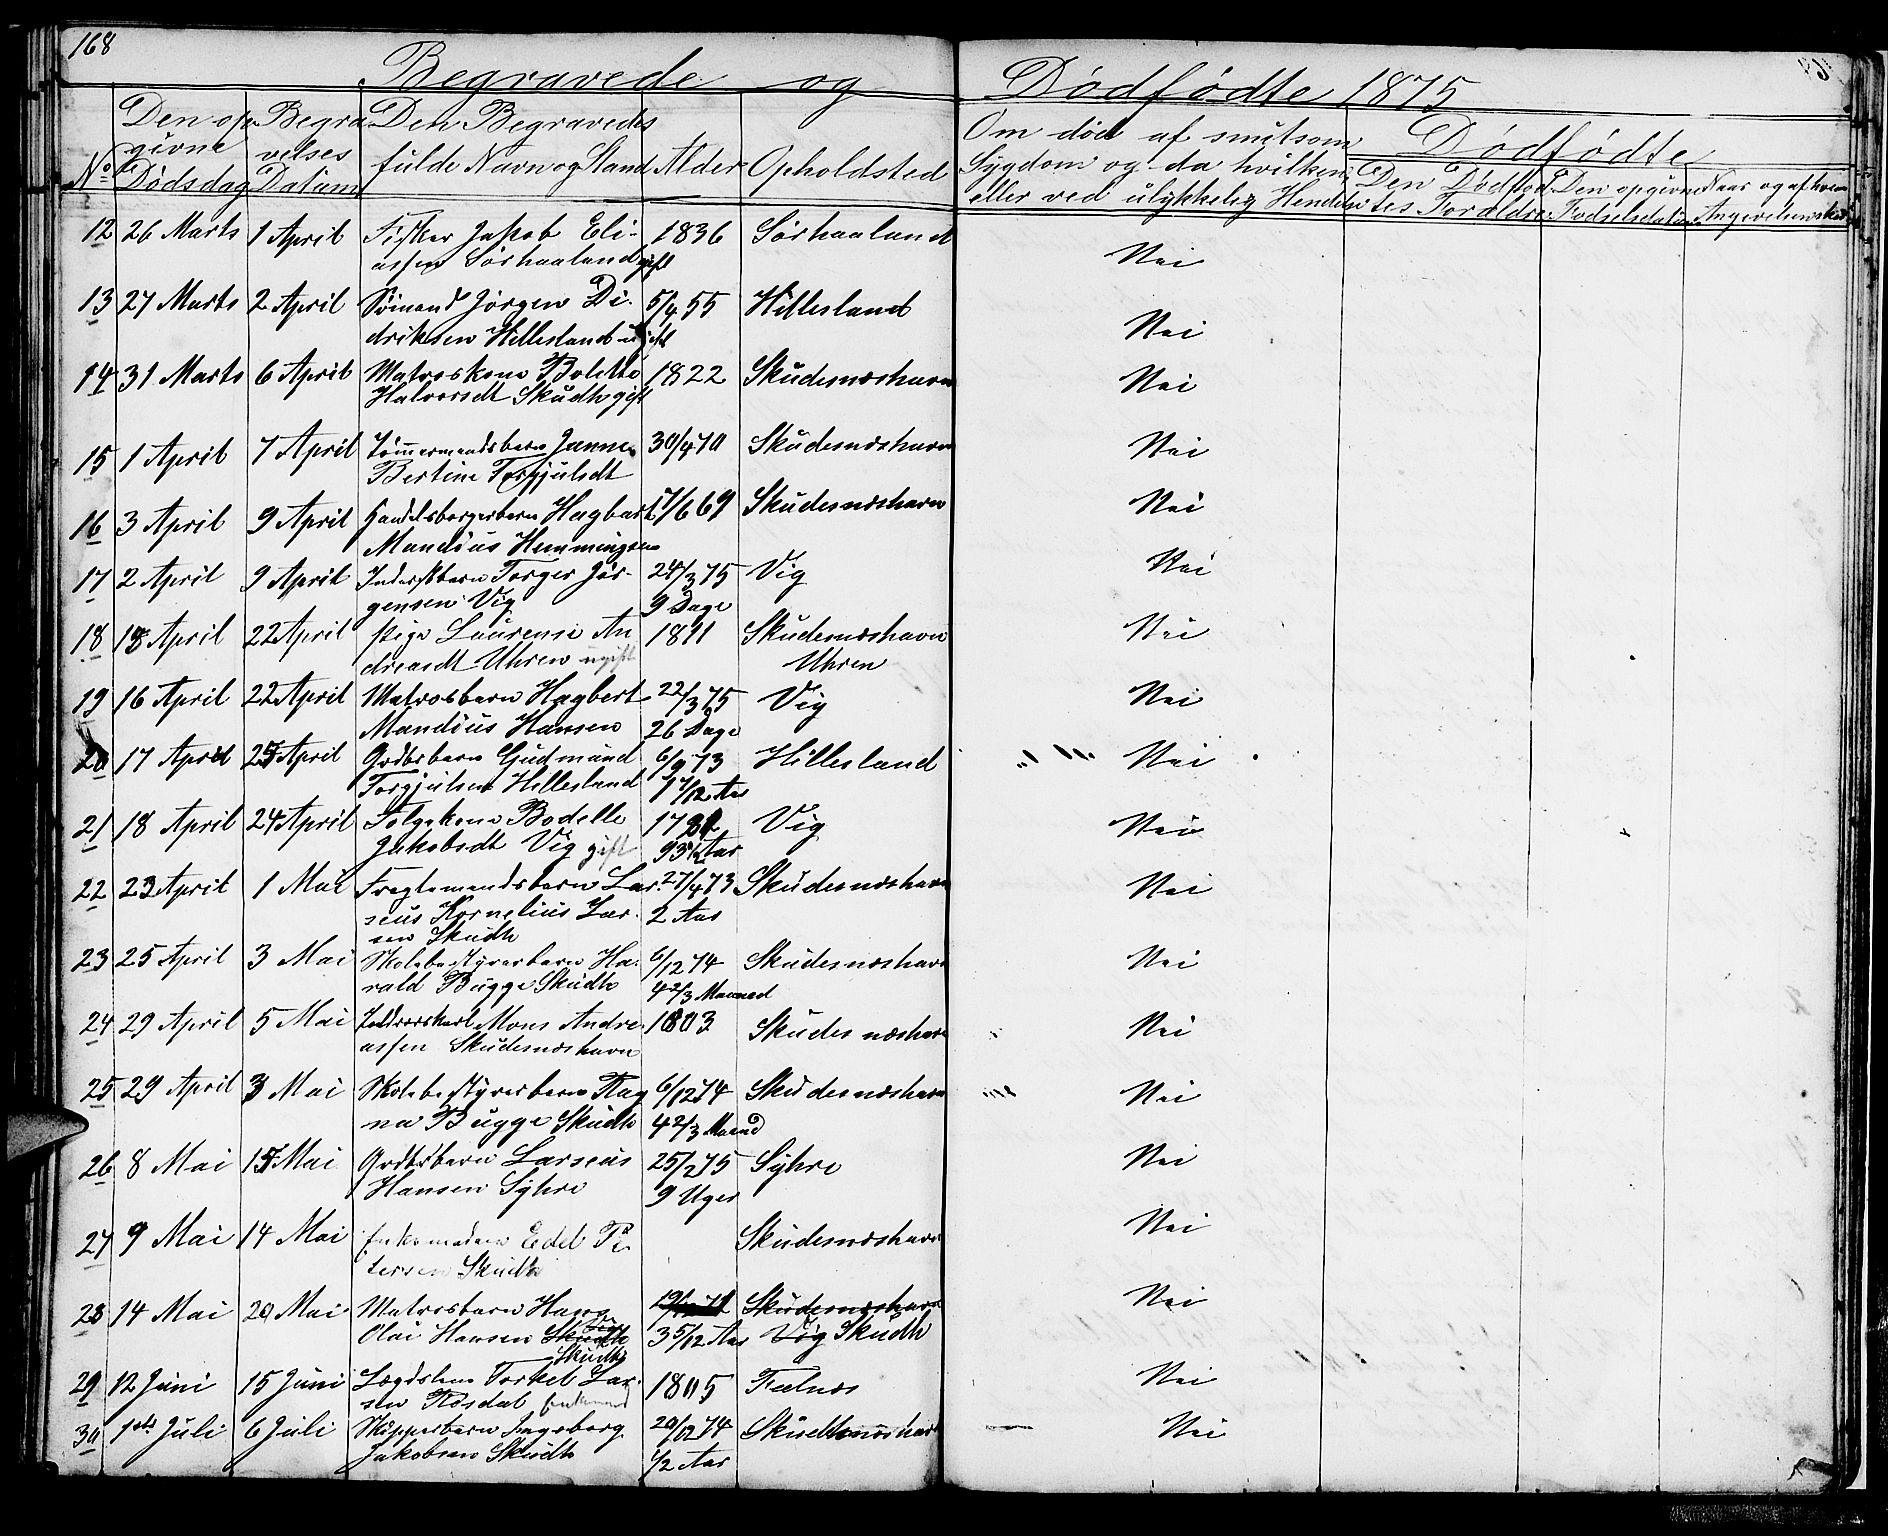 168
Begravede og Dødfødte 1875
No
Den opgivne Dødsdag
Begravelses Datum
Den Begravedes fulde Navn og Stand
Alder
Opholdsted
Om död af smitsom Sygdom og da hvilken, eller ved ulykkelig Hendelse
Dødfødte
Den Dødfødtes Foraldre
Den opgivne Fødselsdatum
Naar og af hvem
12 26 Marts 1 April Fisker Jakob Eli- 1836 Sörhaaland Nei
assen Sörhaaland gift
13 27 Marts 2 April Sömand Jörgen Di- 5/4 55 Hillesland Nei
driksen Hillesland ugift
14 31 Marts 6 April Matroskone Bolette 1822 Skudesnæshavn Nei
Halvorsdt Skudh gift
15 1 April 7 April Tömmermandsbarn Janne 30/4 70 Skudesnæshavn Nei
Bertine Torgjulsdt
16 3 April 9 April Handelsborgerbarn Hagbart 17/6 69 Skudesnæshavn Nei
Mandius Hemmingsen
17 2 April 9 April Torger Jör- 24/3 75 Vig Nei
gensen Vig 9 Dage
18 April 22 April pige Laurense An 1811 Skudesnæshavn Nei
dreasdt Uhren ugift Uhren
19 16 April 22 April Matrosbarn Hagbert 22/3 75 Vig Nei
Mandius Hansen 26 Dage
20 17 April April Grdbrbarn Gudmund 6/9 73 Hillesland Nei
Torgjulsen Hillesland 1 7/12 Aar
21 18 April 24 April Folgekone Bodelle Vig Nei
Jakobsdt Vig gift Aar
22 23 April 1 Mai Fragtemandsbarn Lar- 27/4 73 Skudesnæshavn Nei
seus Kornelius Lar- 2 Aar
sen Skudh
23 25 April 3 Mai Skolebestyrerbarn Ha- 6/12 74 Skudesnæshavn Nei
rald Bugge Skudh 4 2/3 Maaned
24 29 April 5 Mai Mons Andre- 1803 Skudesnæshavn Nei
assen Skudesnæshavn
25 29 April 3 Mai Skolebestyrerbarn Rag 6/12 74 Skudesnæshavn Nei
na Bugge Skudh 4 2/3 Maaned
26 8 Mai Mai Grdbrbarn Larseus 25/2 75 Syhre Nei
Hansen Syhre 9 Uger
27 9 Mai 14 Mai Enkemadam Edel Pe- Skudesnæshavn Nei
tersen Skudh
28 14 Mai 20 Mai Matrosbarn Hans Skudesnæshavn Nei
Olai Hansen Skudh 3 5/12 Aar Vig Skudh
Skudh
29 12 Juni 15 Juni Lægdslem Torkel Lar- 1805 Falnæs Nei
sen Rosdal Enkemand
30 1ste Juli 6 Juli Skipperbarn Ingeborg 29/12 74 Skudesnæshavn Nei
Jakobsen Skudh 1/2 Aar